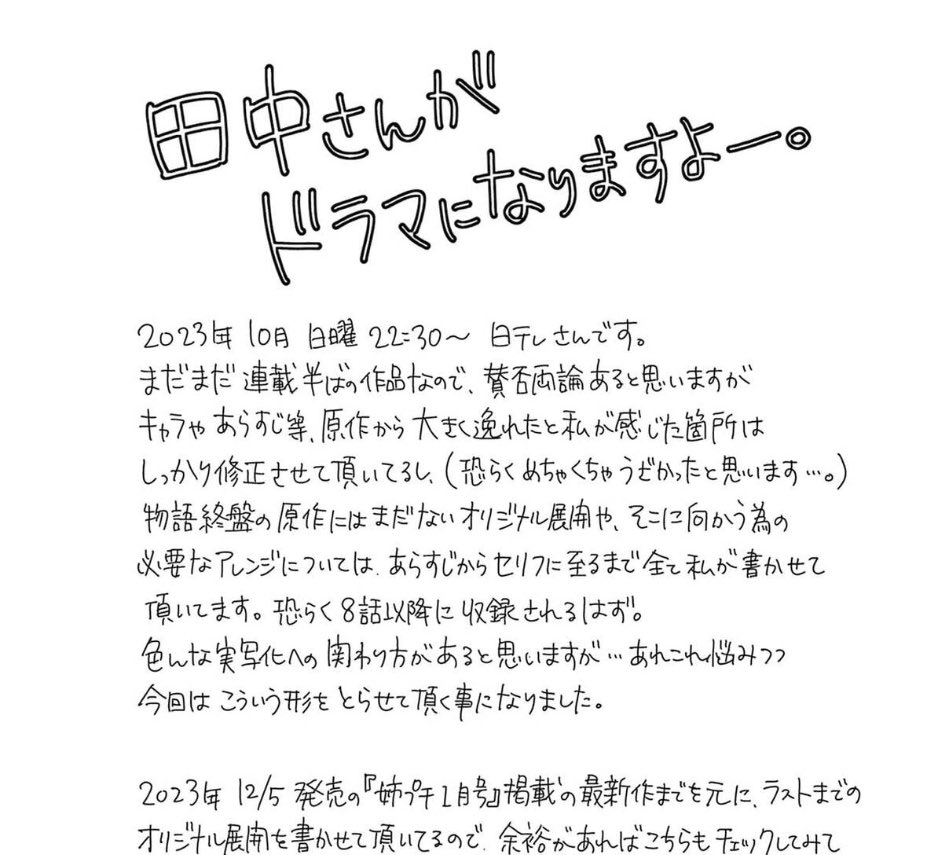 田中さんが
ドラマになりますよー。
2023年 10月 日曜 22:30〜 日テレさんです。
まだまだ連載半ばの作品なので、賛否両論あると思いますが
キャラや あらすじ等、原作から大きく逸れたと私が感じた箇所は
しっかり修正させて頂いてるし、(恐らくめちゃくちゃうざかったと思います…。)
物語終盤の原作にはまだないオリジナル展開や、そこに向かう為の
必要なアレンジについては、あらすじからセリフに至るまで全て私が書かせて
頂いてます。恐らく8話以降に収録されるはず。
色んな実写化への関わり方があると思いますが…あれこれ悩みつつ
今回は こういう形を とらせて頂く事になりました。
2023年 12/5 発売の『姉プチ1月号』掲載の最新作までを元に、ラストまでの
オリジナル展開を書かせて頂いてるので、余裕があればこちらもチェックしてみて